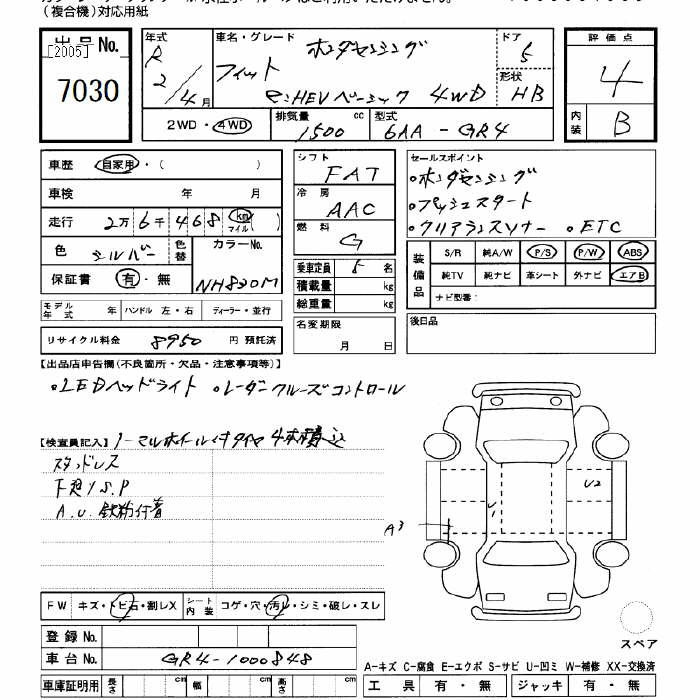 (複合機)対応用紙
出品No. [2005] 7030
年式 R 2/4 月
車名・グレード ホンダセンシング
フィット
e:HEVベーシック 4WD
ドア 5
形状 HB
評価点 4
内装 B
2WD・4WD 排気量 1500 cc 型式 6AA - GR4
車歴 自家用・( )
車検 年 月
走行 2万6千468 km マイル( )
色 シルバー 色替 カラーNo. NH830M
保証書 有・無
モデル年式 年 ハンドル 左・右 ディーラー・並行
リサイクル料金 8950 円 預託済
シフト FAT
冷房 AAC
燃料 G
乗車定員 5 名
積載量 kg
総重量 kg
名変期限 月 日
セールスポイント
・ホンダセンシング
・プッシュスタート
・クリアランスソナー ・ETC
装備品 S/R 純A/W P/S P/W ABS
純TV 純ナビ 革シート 外ナビ エアB
ナビ型番:
後日品
【出品店申告欄(不良箇所・欠品・注意事項等)】
・LEDヘッドライト ・レーダークルーズコントロール
【検査員記入】 ノーマルホイール付タイヤ4本積込
スタッドレス
下廻りS.P
A.U.鉄粉付着
A3
U1
U2
FW キズ・トビ石・割レX シート内装 コゲ・穴・汚レ・シミ・破レ・スレ
登録No.
車台No. GR4-1000848
スペア
A-キズ C-腐食 E-エクボ S-サビ U-凹ミ W-補修 XX-交換済
車庫証明用 長さ cm 幅 cm 高さ cm
工具 有・無 ジャッキ 有・無